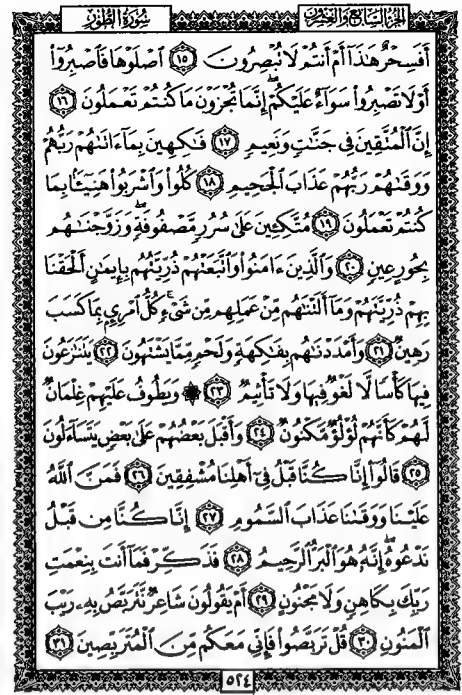 سُورَةُ الطُّورِ
الجُزْءُ السَّابِعُ وَالعِشْرُونَ
أَفَسِحْرٌ هَٰذَآ أَمْ أَنتُمْ لَا تُبْصِرُونَ ١٥ ٱصْلَوْهَا فَٱصْبِرُوٓا۟
أَوْ لَا تَصْبِرُوا۟ سَوَآءٌ عَلَيْكُمْ ۖ إِنَّمَا تُجْزَوْنَ مَا كُنتُمْ تَعْمَلُونَ ١٦
إِنَّ ٱلْمُتَّقِينَ فِى جَنَّٰتٍ وَنَعِيمٍ ١٧ فَٰكِهِينَ بِمَآ ءَاتَىٰهُمْ رَبُّهُمْ
وَوَقَىٰهُمْ رَبُّهُمْ عَذَابَ ٱلْجَحِيمِ ١٨ كُلُوا۟ وَٱشْرَبُوا۟ هَنِيٓـًٔۢا بِمَا
كُنتُمْ تَعْمَلُونَ ١٩ مُتَّكِـِٔينَ عَلَىٰ سُرُرٍ مَّصْفُوفَةٍ ۖ وَزَوَّجْنَٰهُم
بِحُورٍ عِينٍ ٢٠ وَٱلَّذِينَ ءَامَنُوا۟ وَٱتَّبَعَتْهُمْ ذُرِّيَّتُهُم بِإِيمَٰنٍ أَلْحَقْنَا
بِهِمْ ذُرِّيَّتَهُمْ وَمَآ أَلَتْنَٰهُم مِّنْ عَمَلِهِم مِّن شَىْءٍ ۚ كُلُّ ٱمْرِئٍۭ بِمَا كَسَبَ
رَهِينٌ ٢١ وَأَمْدَدْنَٰهُم بِفَٰكِهَةٍ وَلَحْمٍ مِّمَّا يَشْتَهُونَ ٢٢ يَتَنَٰزَعُونَ
فِيهَا كَأْسًا لَّا لَغْوٌ فِيهَا وَلَا تَأْثِيمٌ ٢٣ ۞ وَيَطُوفُ عَلَيْهِمْ غِلْمَانٌ
لَّهُمْ كَأَنَّهُمْ لُؤْلُؤٌ مَّكْنُونٌ ٢٤ وَأَقْبَلَ بَعْضُهُمْ عَلَىٰ بَعْضٍ يَتَسَآءَلُونَ
٢٥ قَالُوٓا۟ إِنَّا كُنَّا قَبْلُ فِىٓ أَهْلِنَا مُشْفِقِينَ ٢٦ فَمَنَّ ٱللَّهُ
عَلَيْنَا وَوَقَىٰنَا عَذَابَ ٱلسَّمُومِ ٢٧ إِنَّا كُنَّا مِن قَبْلُ
نَدْعُوهُ ۖ إِنَّهُۥ هُوَ ٱلْبَرُّ ٱلرَّحِيمُ ٢٨ فَذَكِّرْ فَمَآ أَنتَ بِنِعْمَتِ
رَبِّكَ بِكَاهِنٍ وَلَا مَجْنُونٍ ٢٩ أَمْ يَقُولُونَ شَاعِرٌ نَّتَرَبَّصُ بِهِۦ رَيْبَ
ٱلْمَنُونِ ٣٠ قُلْ تَرَبَّصُوا۟ فَإِنِّى مَعَكُم مِّنَ ٱلْمُتَرَبِّصِينَ ٣١
٥٢٤